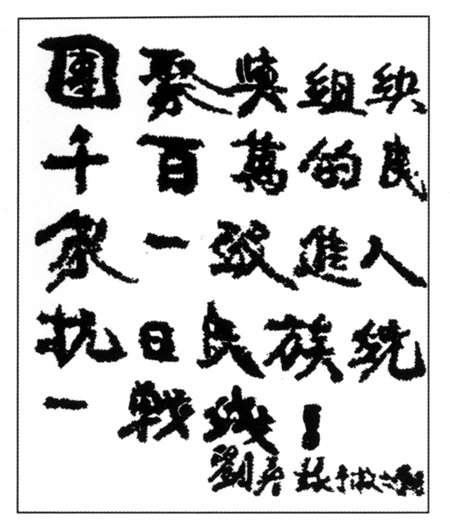 團聚與組織
千百萬的民
衆一致進入
抗日民族統
一戰綫！
劉